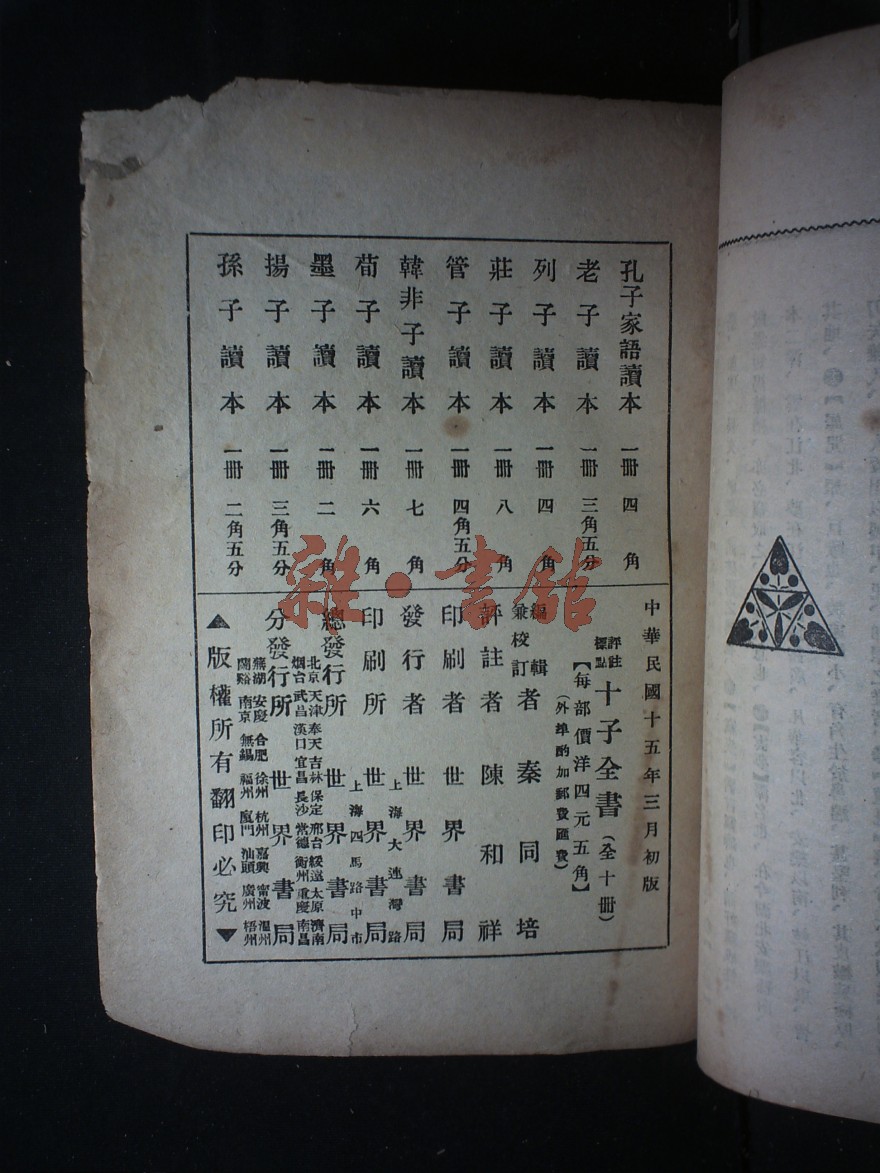 孔子家語讀本 一冊 四角
老子讀本 一冊 三角五分
列子讀本 一冊 四角
莊子讀本 一冊 八角
管子讀本 一冊 四角五分
韓非子讀本 一冊 七角
荀子讀本 一冊 六角
墨子讀本 一冊 二角
揚子讀本 一冊 三角五分
孫子讀本 一冊 二角五分
中華民國十五年三月初版
評註標點 十子全書(全十冊)
【每部價洋四元五角】
(外埠酌加郵費匯費)
編輯兼校訂者 秦同培
評註者 陳和祥
印刷者 世界書局
發行者 世界書局
上海大連灣路
印刷所 世界書局
上海四馬路中市
總發行所 世界書局
北京 天津 奉天 吉林 保定 邢台 綏遠 太原 濟南
烟台 武昌 漢口 宜昌 長沙 常德 衡州 重慶 南昌
分發行所 世界書局
蕪湖 安慶 合肥 徐州 杭州 嘉興 甯波 溫州
蘭谿 南京 無錫 福州 廈門 汕頭 廣州 梧州
版權所有翻印必究
雜·書館